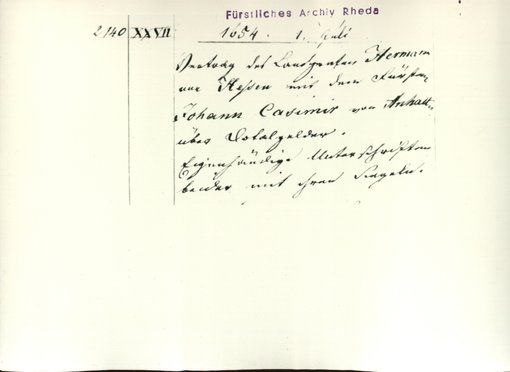 Fürstliches Archiv Rheda
2140 XXVII
1654. 1. Juli
Vertrag des Landgrafen Hermann
von Hessen mit dem Fürsten
Johann Casimir von Anhalt
über Dotalgelder.
Eigenhändige Unterschriften
beider mit ihren Siegeln.